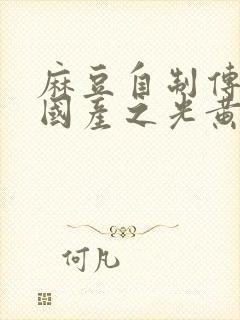 麻豆自制傳
國產之光黃
何凡